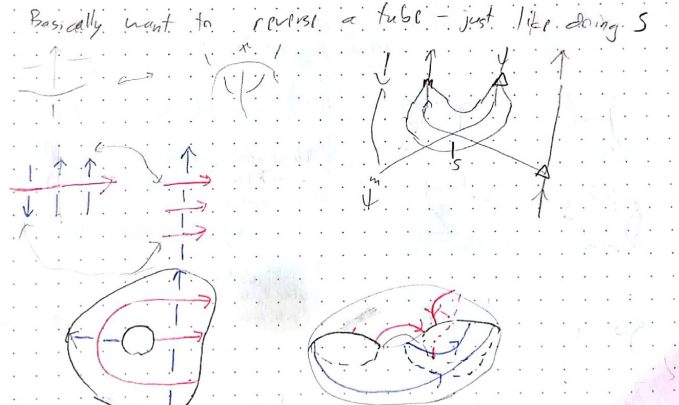 Basically want to reverse a tube - just like doing S
S
ψ m